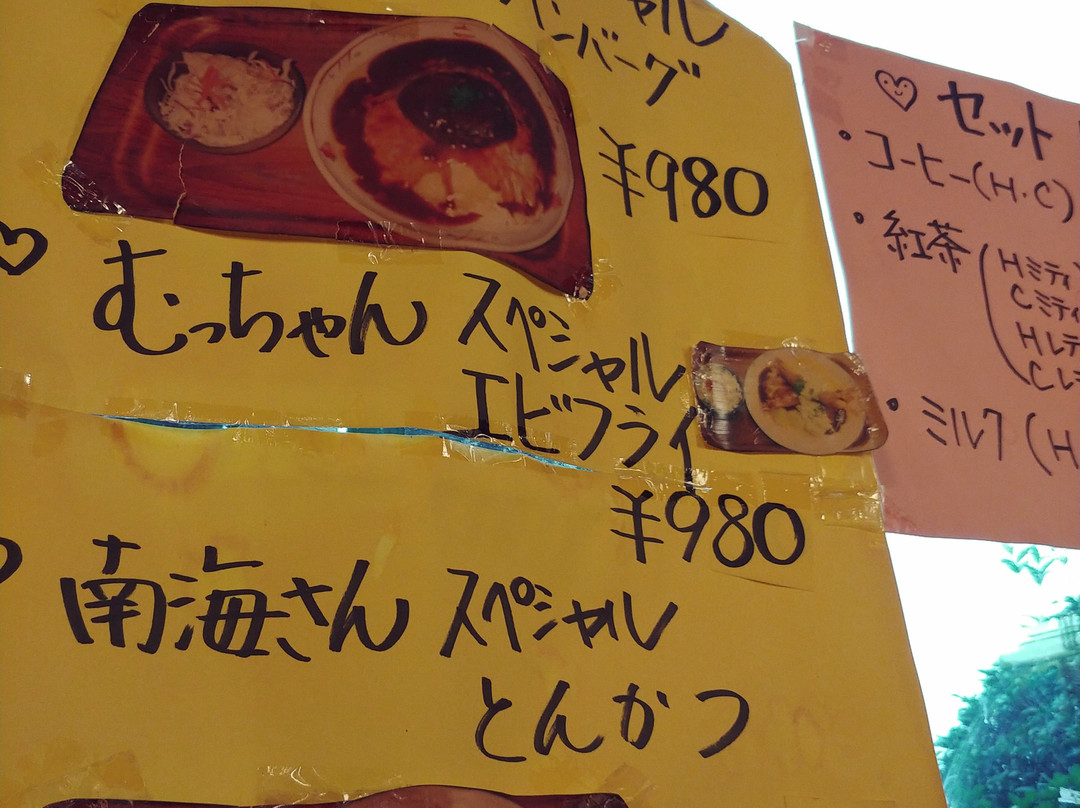 シャル
ーバーグ
¥980
むっちゃん スペシャル
エビフライ
¥980
南海さん スペシャル
とんかつ
セット
・コーヒー(H.C)
・紅茶
Hミティ
Cミティ
Hレティ
Cレ
・ミルク(H